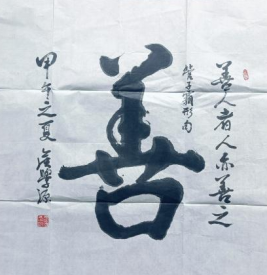 善人者人亦善之
管子霸形句
善
甲午之夏